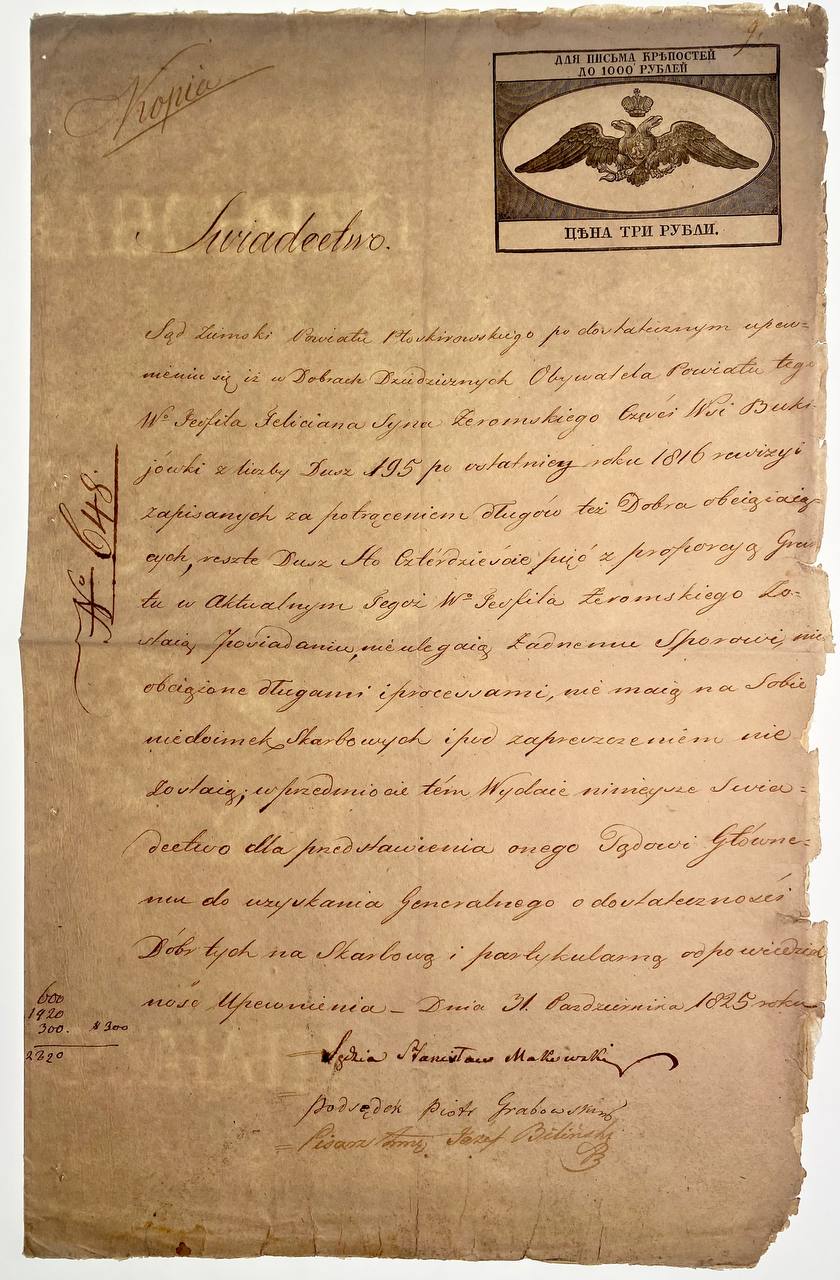 9.
ДЛЯ ПИСЬМА КРѢПОСТЕЙ
ДО 1000 РУБЛЕЙ
ЦѢНА ТРИ РУБЛИ.
Kopia
Swiadectwo.
Sąd Ziemski Powiatu Płoskirowskiego po dostatecznym upew-
nieniu się iż w Dobrach Dziedzicznych Obywatela Powiatu tego
Wo Teofila Feliciana Syna Żeromskiego Części Wsi Buki-
jówki z liczby Dusz 195 po ostatniey roku 1816 rewizyi
zapisanych za potrąceniem długów też Dobra obciążaią-
cych, reszte Dusz Sto Czterdzieście pięć z proporcyą Grun-
tu w Aktualnym Tegoż Wo Teofila Żeromskiego Zo-
staią Posiadaniu, nie ulegaią Żadnemu Sporowi, nie
obciążone długami i processami, nie maią na Sobie
niedoimek Skarbowych i pod zapreszczeniem nie
Zostaią; w przedmiocie tém Wydaie ninieysze Swia=
dectwo dla przedstawienia onego Sądowi Główne=
mu do uzyskania Generalnego o dostateczności
Dóbr tych na Skarbową i partykularną odpowiedzial
ność Upewnienia – Dnia 31. Pazdziernika 1825 roku
Sędzia Stanisław Makowski
Podsędek Piotr Grabowski
Pisarz Józef Biliński
No 648.
600
1920
300. 300
2820